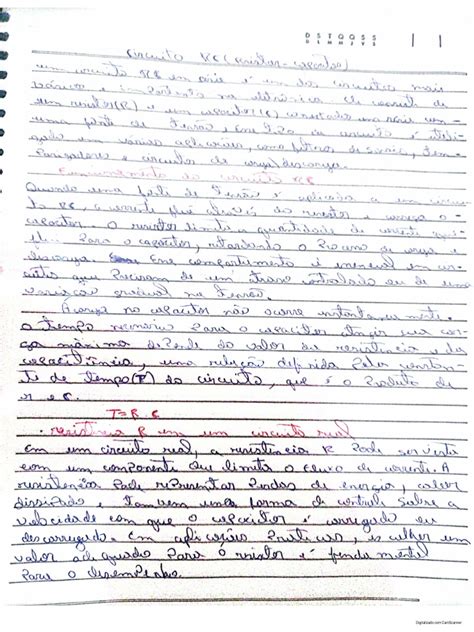 D S T Q Q S S
D L M M J V S
Circuito RC (resistor-capacitor)
um circuito RC em série é um dos circuitos mais
básicos e importante na eletrônica. Ele consiste de
um resistor(R) e um capacitor(C) conectado uma série com
uma fonte de tensão, e em
gado em várias aplicações, como filtros de sinais, tem-
porizadores e circuitos de carga/descarga.
Funcionamento do circuito RC
Quando uma fonte de tensão é aplicada a um circui
to RC, a corrente flui através do resistor e carrega o
capacitor. O resistor limita a quantidade de corrente que
para o capacitor, retardando o processo de carga e
descarga. Esse comportamento é essencial em cir
cuitos que precisam de um controlado ou de uma
variação gradual na tensão.
A carga no capacitor não ocorre instantaneamente.
o tempo necessário para o capacitor atingir sua car
ga máxima depende do valor da resistência e da
capacitância, uma relação definida pela constan-
te de tempo(T) do circuito, que é o produto de
r e c.
T=R.C
- resistência R em um circuito real
Em um circuito real, a resistência R pode ser vista
como um componente que limita o fluxo de corrente. A
resistência pode representar perdas de energia, calor
dissipado e também uma forma de controle sobre a
velocidade com que o capacitor é carregado ou
descarregado. Em aplicações práticas, escolher um
valor adequado para o resistor é fundamental
para o desempenho.
Digitalizado com CamScanner